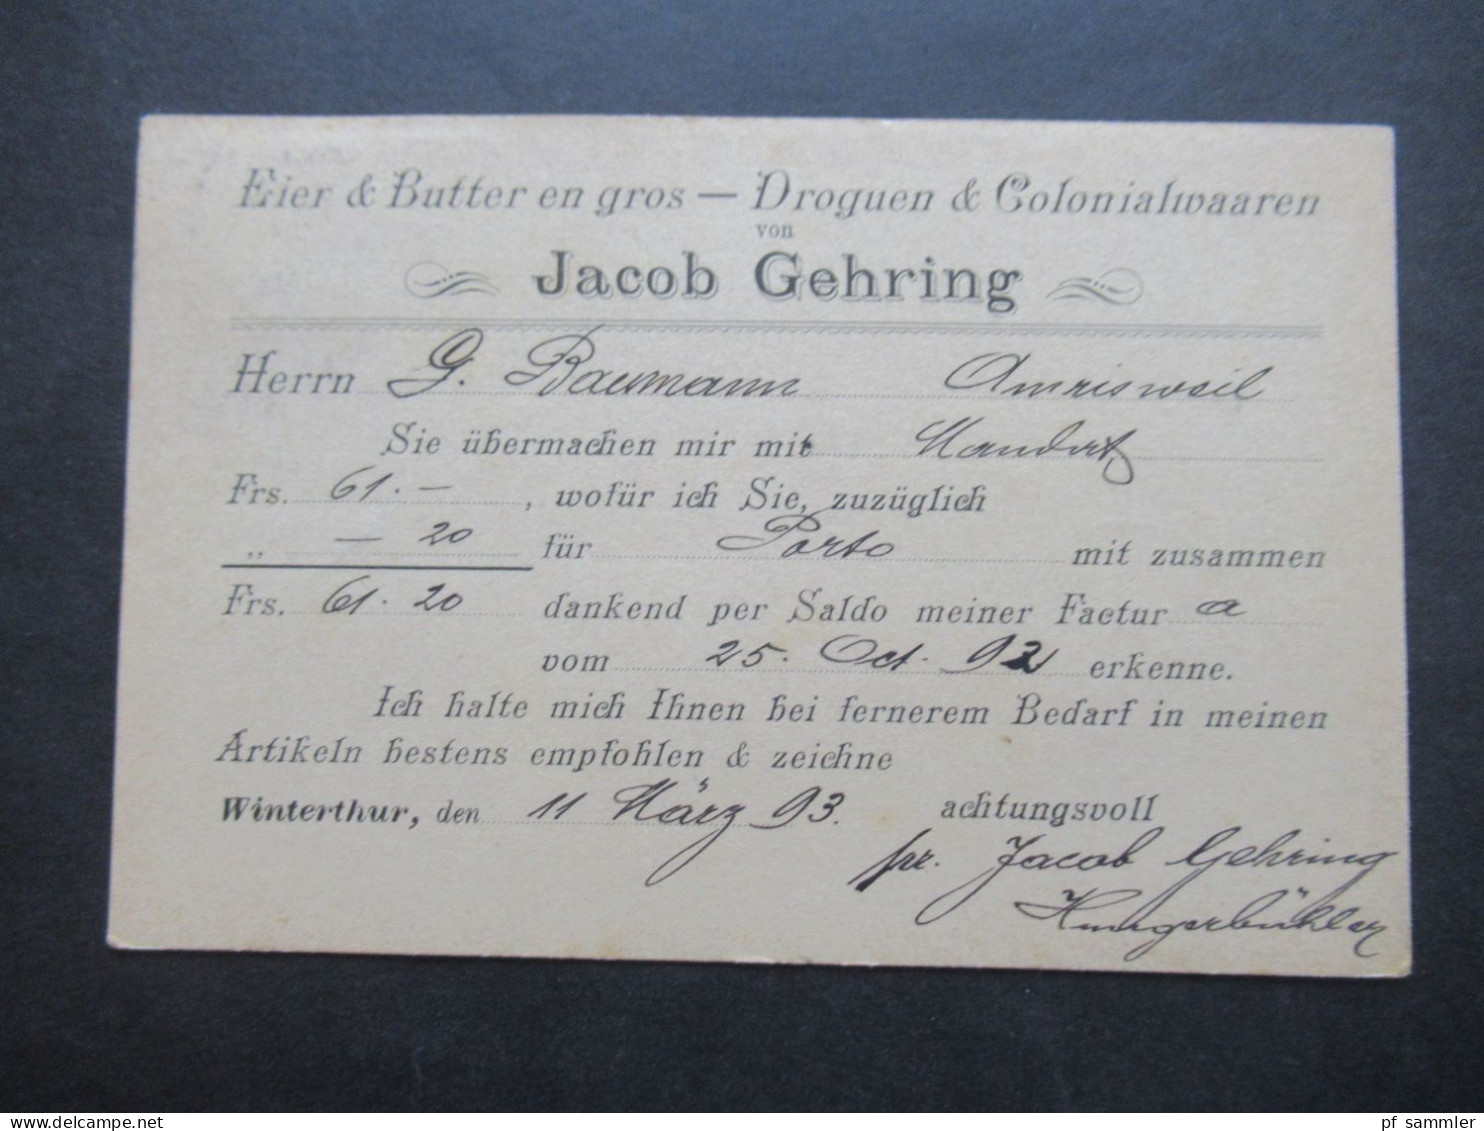 Eier & Butter en gros — Droguen & Colonialwaaren
von
Jacob Gehring
Herrn G. Baumann Amrisweil
Sie übermachen mir mit Mandat
Frs. 61.— , wofür ich Sie, zuzüglich
„ — 20 für Porto mit zusammen
Frs. 61. 20 dankend per Saldo meiner Factur a
vom 25. Oct. 92 erkenne.
Ich halte mich Ihnen bei fernerem Bedarf in meinen
Artikeln bestens empfohlen & zeichne
Winterthur, den 11 März 93. achtungsvoll
pr. Jacob Gehring
Hungerbühler
pf sammler